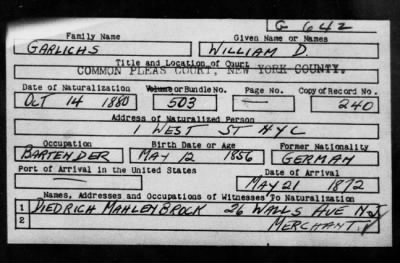 G 642
Family Name Given Name or Names
GARLICHS WILLIAM D
Title and Location of Court
COMMON PLEAS COURT, NEW YORK COUNTY.
Date of Naturalization Volume or Bundle No. Page No. Copy of Record No.
OCT 14 1880 503 — 240
Address of Naturalized Person
1 WEST ST NYC
Occupation Birth Date or Age Former Nationality
BARTENDER MAY 12 1856 GERMAN
Port of Arrival in the United States Date of Arrival
— MAY 21 1872
Names, Addresses and Occupations of Witnesses To Naturalization
1 DIEDRICH MAHLENBROCK 26 WALLS AVE NJ
2 MERCHANT